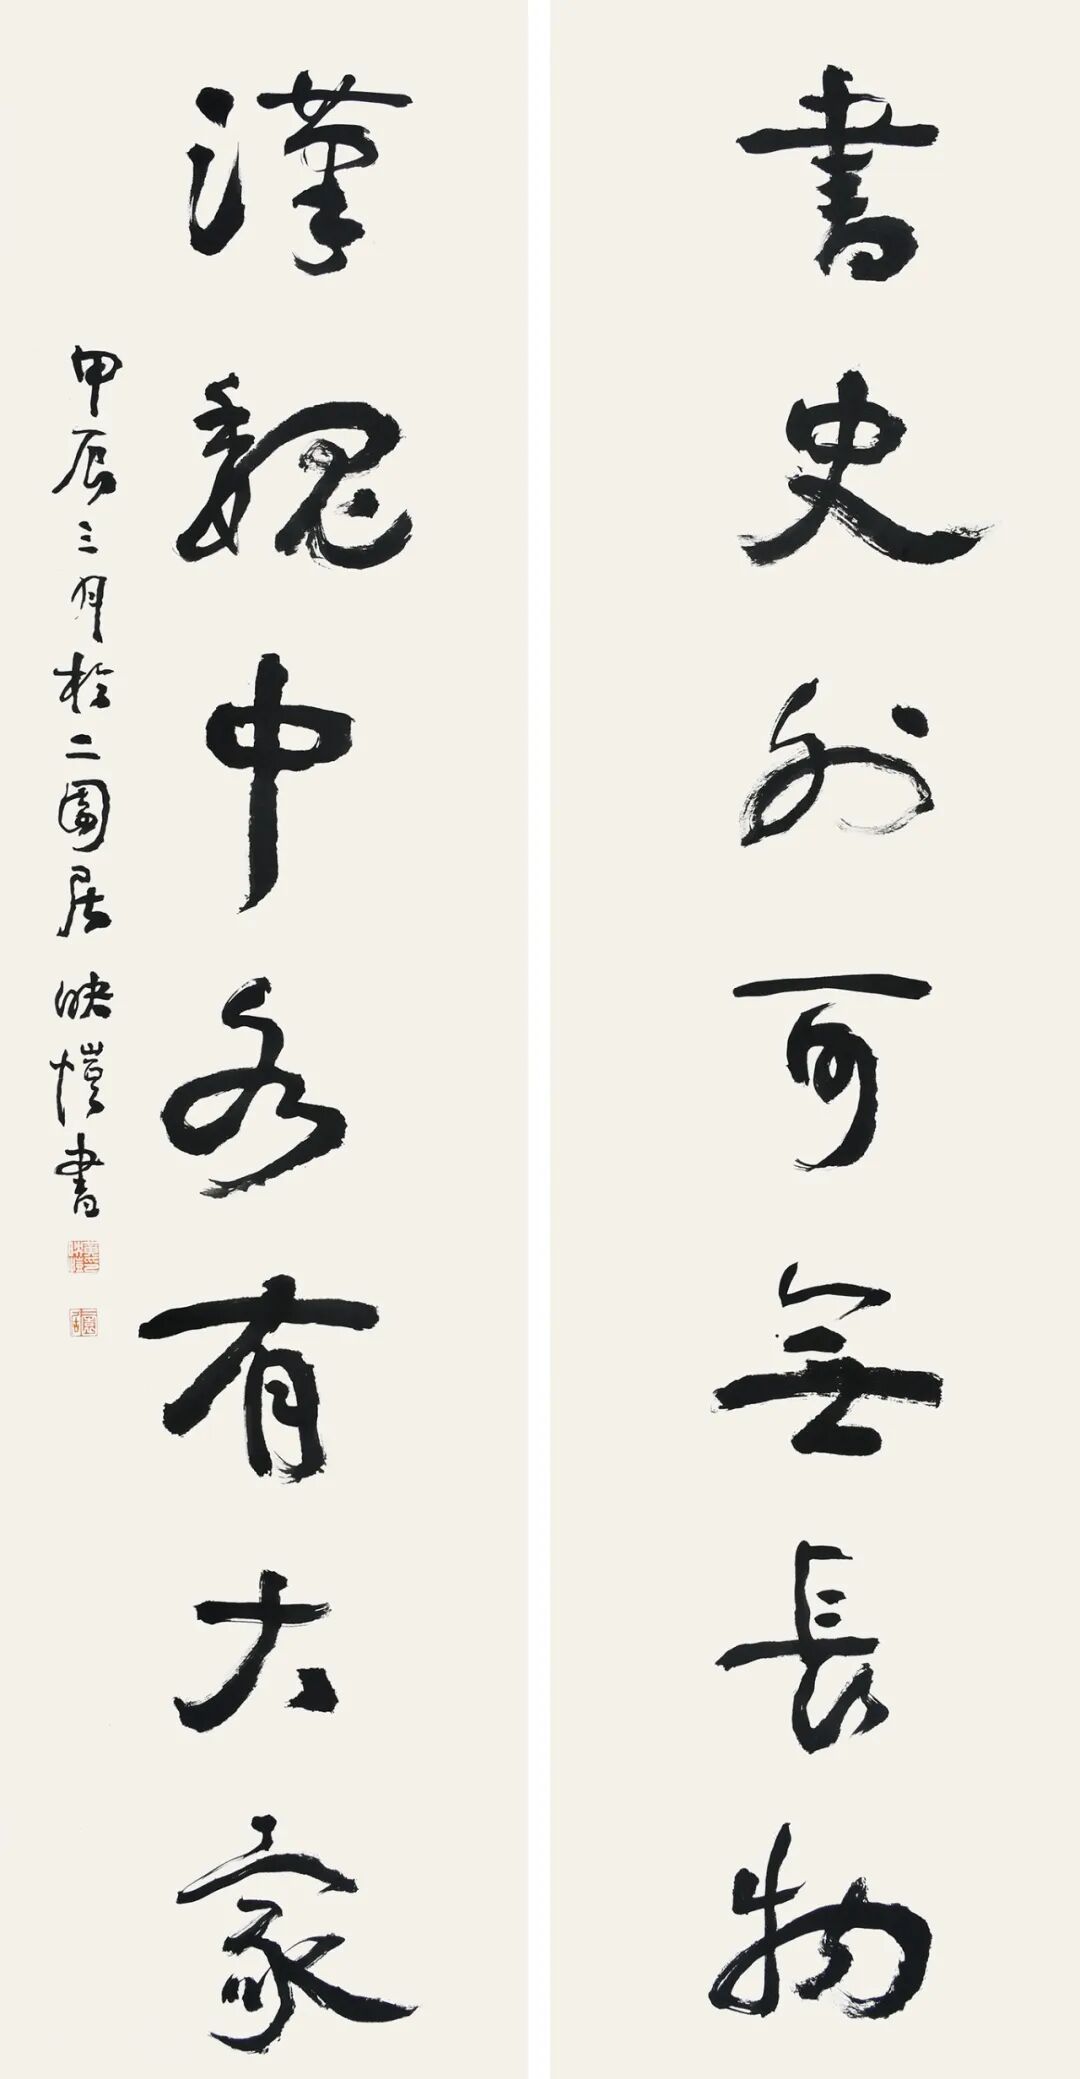 書史外可無長物
漢魏中亦有大家
甲辰三月於二園居 映愷書